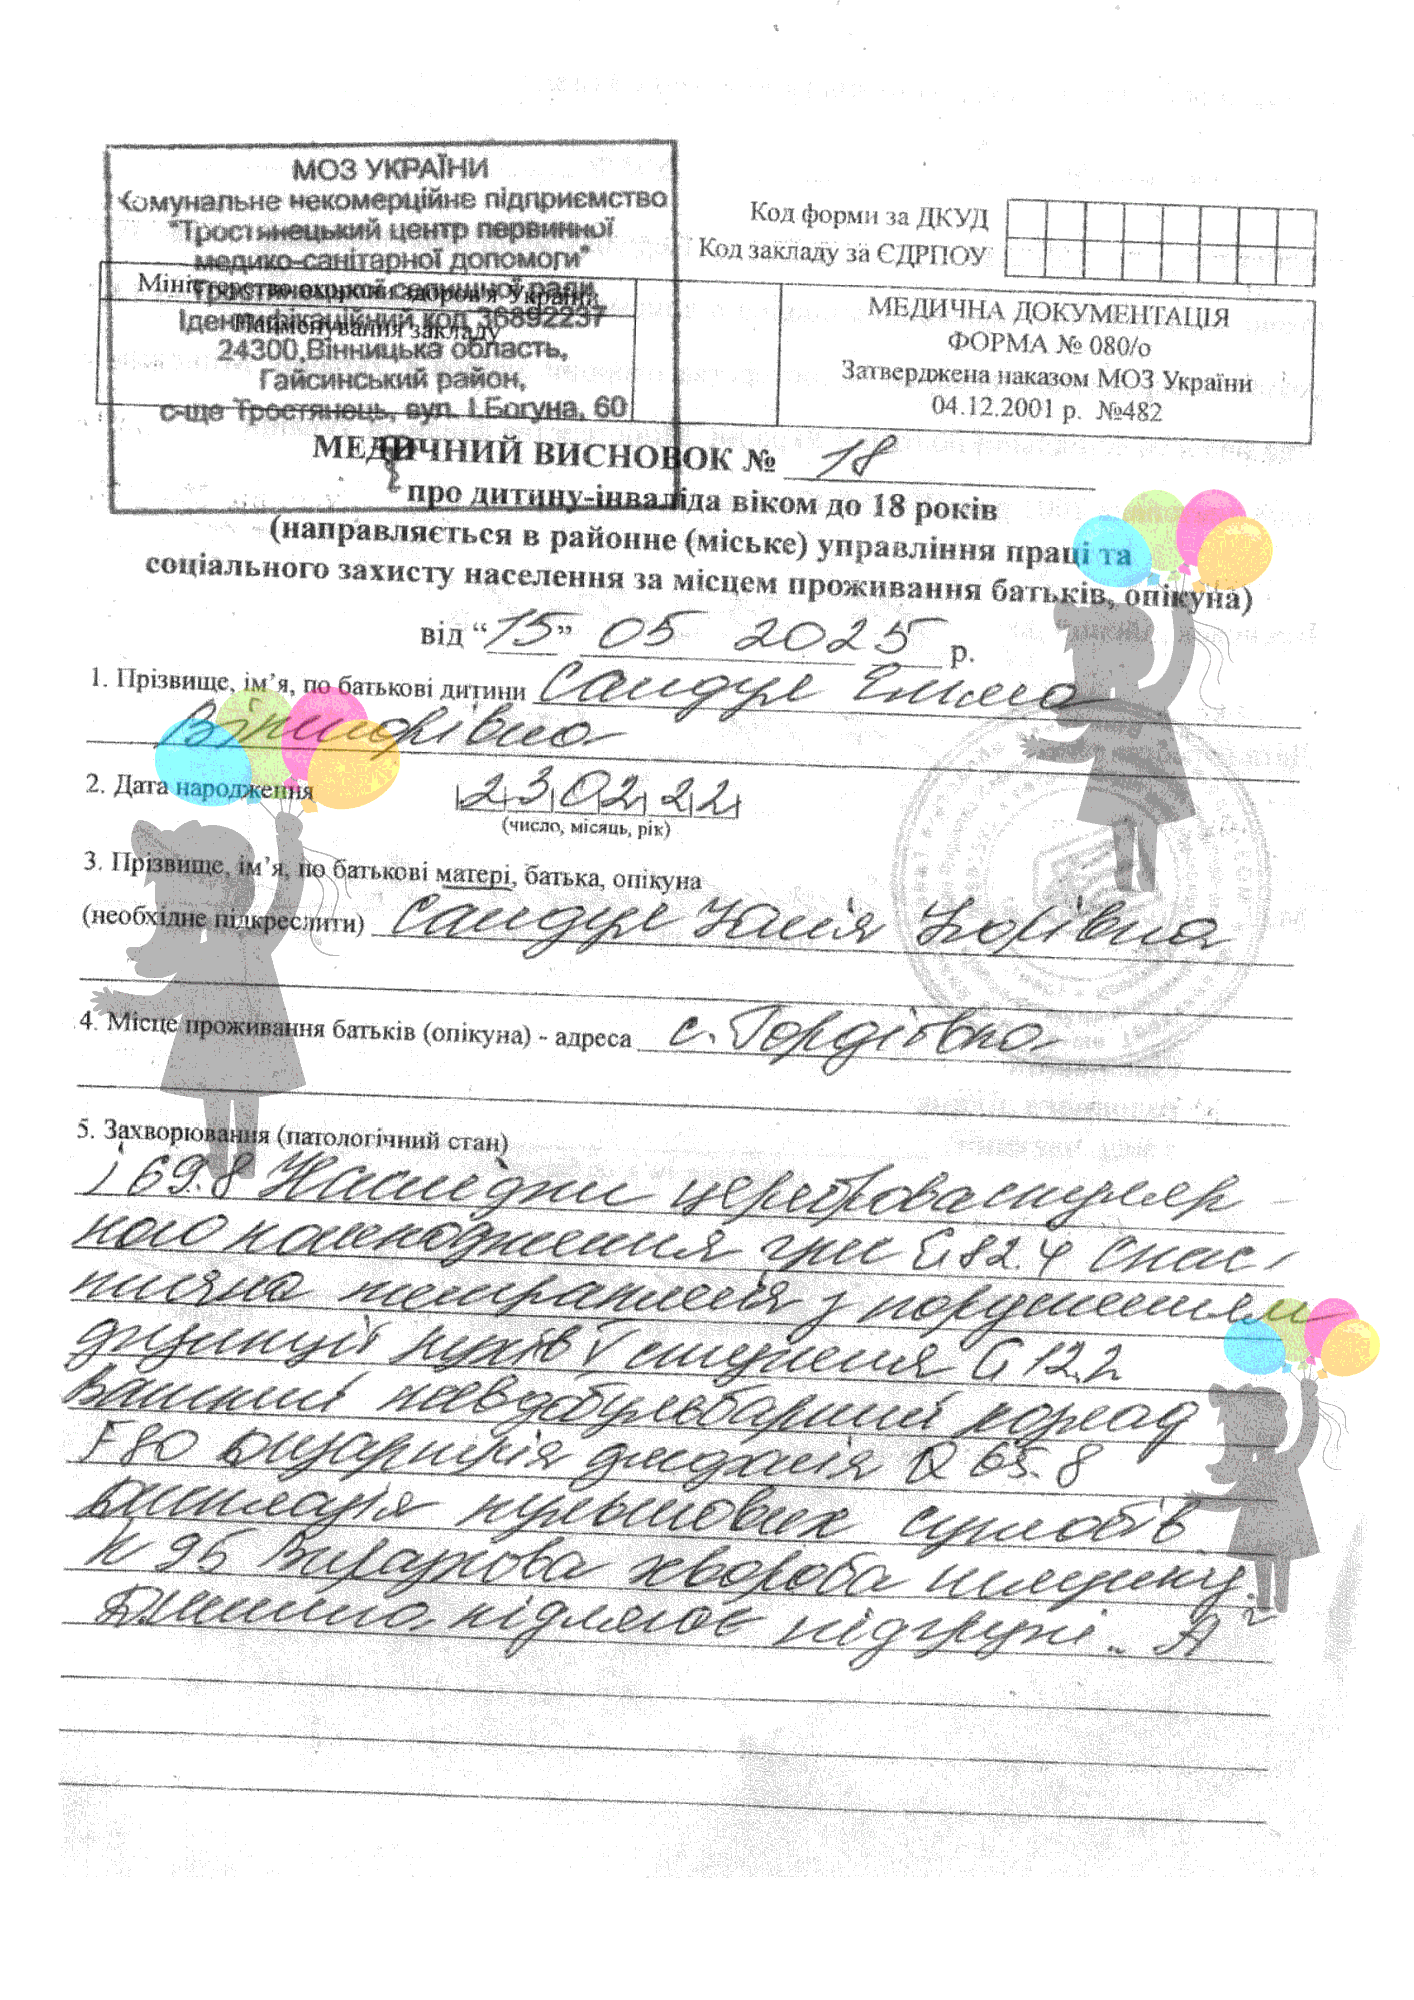 МОЗ УКРАЇНИ
Комунальне некомерційне підприємство
"Тростянецький центр первинної
медико-санітарної допомоги"
Тростянецької селищної ради
Ідентифікаційний код 36892237
24300,Вінницька область,
Гайсинський район,
с-ще Тростянець, вул. І.Богуна, 60
Міністерство охорони здоров'я України
Найменування закладу
Код форми за ДКУД
Код закладу за ЄДРПОУ
МЕДИЧНА ДОКУМЕНТАЦІЯ
ФОРМА № 080/о
Затверджена наказом МОЗ України
04.12.2001 р. №482
МЕДИЧНИЙ ВИСНОВОК № 18
про дитину-інваліда віком до 18 років
(направляється в районне (міське) управління праці та
соціального захисту населення за місцем проживання батьків, опікуна)
від “15” 05 2025 р.
1. Прізвище, ім’я, по батькові дитини Сандул
2. Дата народження 23 02 22
(число, місяць, рік)
3. Прізвище, ім’я, по батькові матері, батька, опікуна
(необхідне підкреслити) Сандул Юлія Ігорівна
4. Місце проживання батьків (опікуна) - адреса с. Гордіївка
5. Захворювання (патологічний стан)
І 69.8 Наслідки цереброваскуляр-
ного пошкодження G 82.4 спас-
тична тетраплегія з порушенням
функції рухів і G 12.2
псевдобульбарний розлад
F80 Дизартрія дислалія Q 65.8
Дисплазія кульшових суглобів
К 25 Виразкова хвороба шлунку.
Дитина підлягає підгрупі А